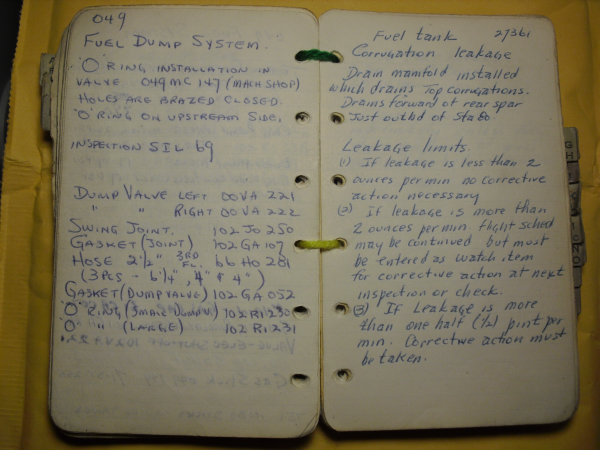 049
FUEL DUMP SYSTEM.
"O" RING INSTALLATION IN
VALVE 049MC147 (MACH SHOP)
HOLES ARE BRAZED CLOSED.
"O" RING ON UPSTREAM SIDE.
INSPECTION SIL 69
DUMP VALVE LEFT 00VA 221
" " RIGHT 00VA 222
SWING JOINT. 102 JO 250
GASKET (JOINT) 102 GA 107
HOSE 2 1/2" 3RD FL. 66 HO 201
(3 PCS - 6 1/4", 4" & 4")
GASKET (DUMP VALVE) 102 GA 052
"O" RING (SMALL DUMP V.) 102 RI 230
"O" " (LARGE) 102 RI 231
Fuel tank 27361
Corrugation leakage
Drain manifold installed
which drains top corrugations.
Drains forward of rear spar
Just outbd of sta 80
Leakage limits.
(1) If leakage is less than 2
ounces per min no corrective
action necessary
(2) If leakage is more than
2 ounces per min flight sched
may be continued but must
be entered as watch item
for corrective action at next
inspection or check.
(3) If Leakage is more
than one half (1/2) pint per
min. Corrective action must
be taken.